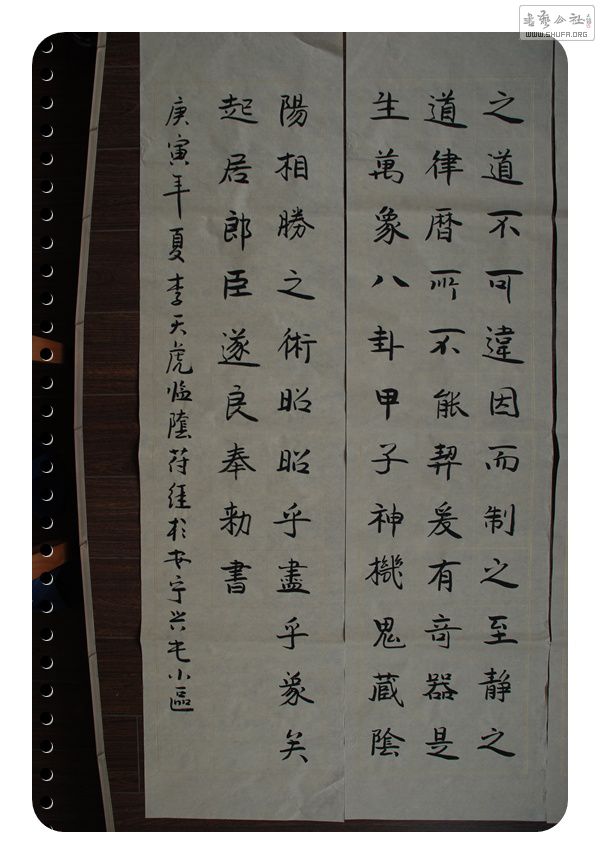 之道不可違因而制之至静之
道律暦所不能契爰有奇器是
生萬象八卦甲子神機鬼蔵陰
陽相勝之術昭昭乎盡乎象矣
起居郎臣遂良奉勑書
庚寅年夏李天虎临陰符経於安宁兴屯小區
WWW.SHUFA.ORG